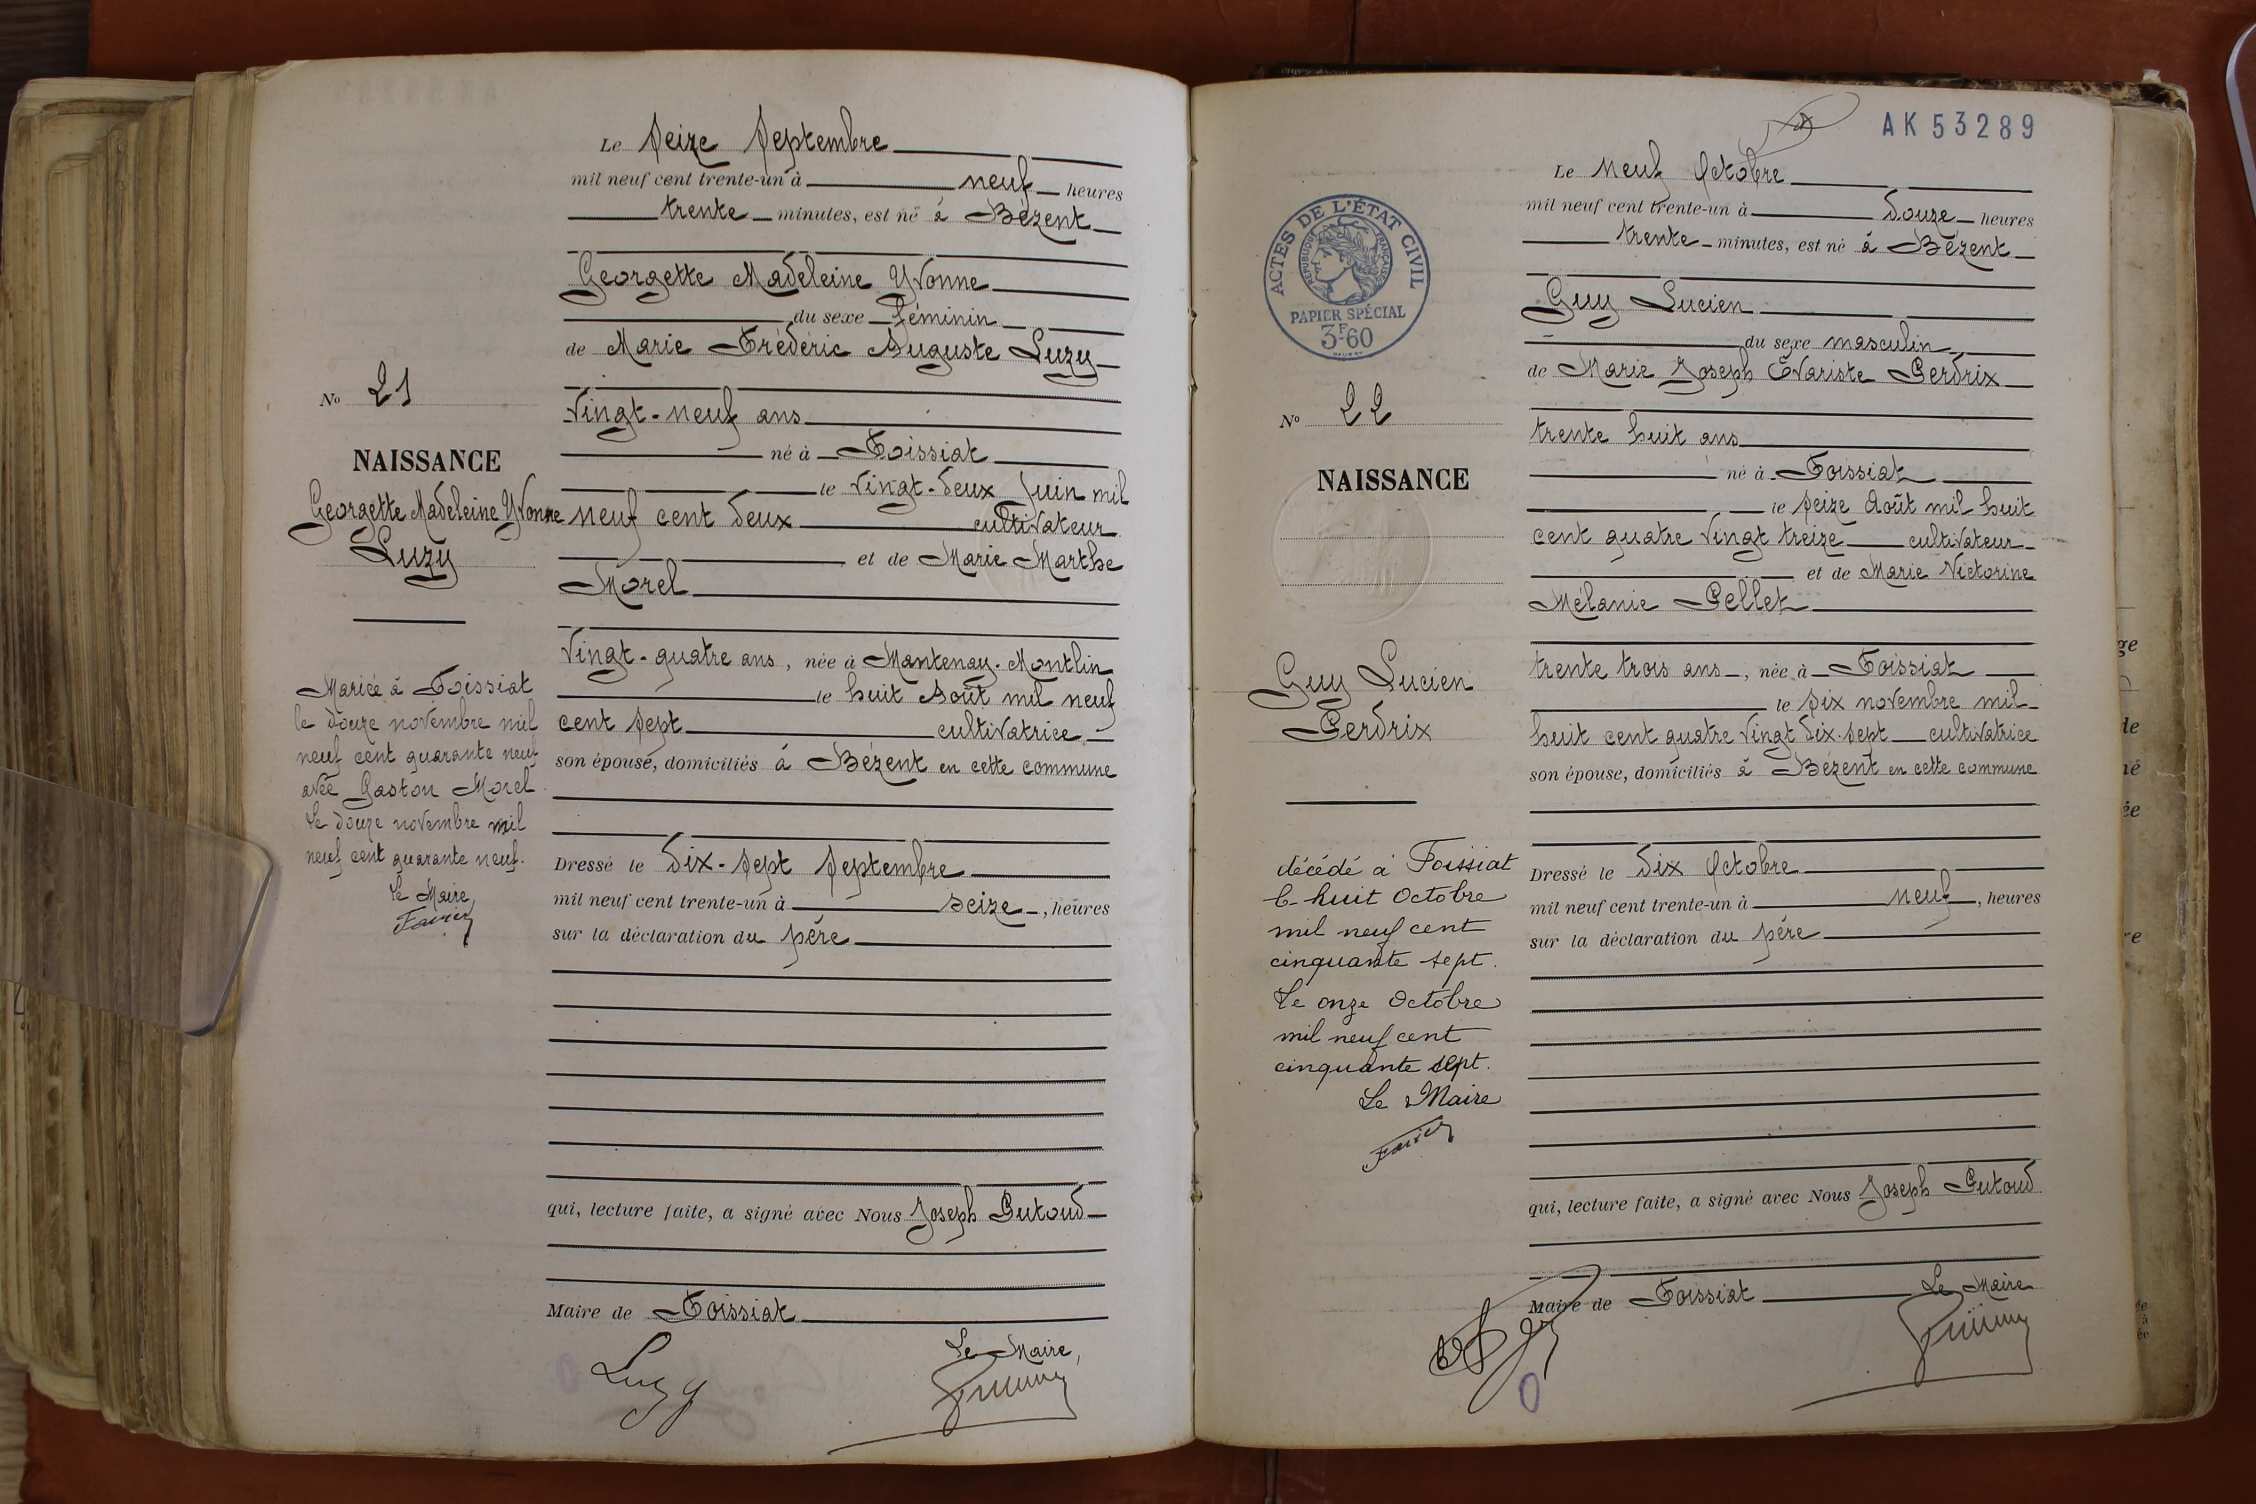 Le seize septembre
mil neuf cent trente-un à neuf heures
trente minutes, est né à Bézent
Georgette Madeleine Yvonne
du sexe féminin
de Marie Frédéric Auguste Luzy
Vingt-neuf ans
né à Foissiat
le vingt-deux Juin mil
neuf cent deux cultivateur
et de Marie Marthe
Morel
Vingt-quatre ans, née à Mantenay-Montlin
le huit Août mil neuf
cent sept cultivatrice
son épouse, domiciliés à Bézent en cette commune
Dressé le dix-sept septembre
mil neuf cent trente-un à seize, heures
sur la déclaration du père
qui, lecture faite, a signé avec Nous Joseph Putoud
Maire de Foissiat
Le Maire,
Luzy
No 21
NAISSANCE
Georgette Madeleine Yvonne
Luzy
Mariée à Foissiat
le douze novembre mil
neuf cent quarante neuf
avec Gaston Morel
Le douze novembre mil
neuf cent quarante neuf.
Le Maire
AK 53289
ACTES DE L'ÉTAT CIVIL
RÉPUBLIQUE FRANÇAISE
PAPIER SPÉCIAL
3F60
Le neuf Octobre
mil neuf cent trente-un à douze heures
trente minutes, est né à Bézent
Guy Lucien
du sexe masculin
de Marie Joseph Evariste Perdrix
trente huit ans
né à Foissiat
le seize Août mil huit
cent quatre vingt treize cultivateur
et de Marie Victorine
Mélanie Pellet
trente trois ans, née à Foissiat
le six novembre mil
huit cent quatre vingt dix-sept cultivatrice
son épouse, domiciliés à Bézent en cette commune
Dressé le dix Octobre
mil neuf cent trente-un à neuf, heures
sur la déclaration du père
qui, lecture faite, a signé avec Nous Joseph Putoud
Maire de Foissiat
Le Maire
No 22
NAISSANCE
Guy Lucien
Perdrix
décédé à Foissiat
le huit Octobre
mil neuf cent
cinquante sept.
Le onze Octobre
mil neuf cent
cinquante sept.
Le Maire